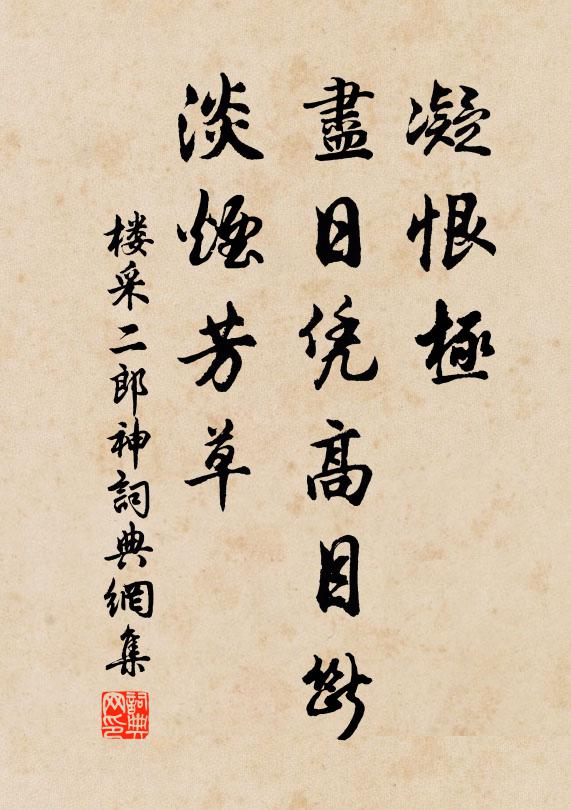 凝恨極
盡日凭高目斷
淡煙芳草
楼采二郎神詞典網集
詞典网印